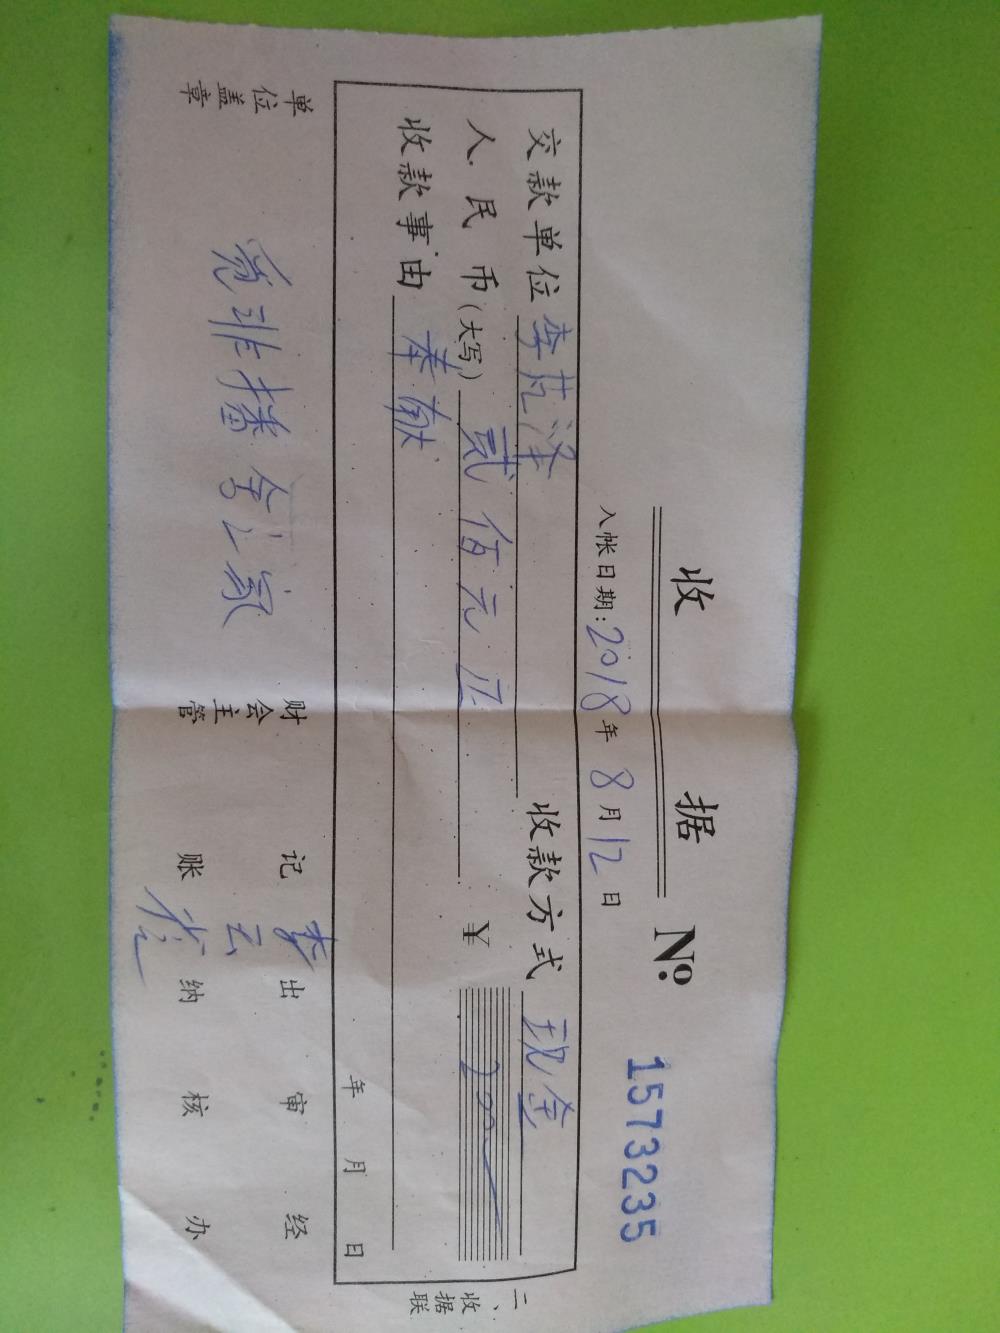 收 据 № 1573235
入帐日期:2018年8月12日
交款单位 李芃泽 收款方式 现金
人民币(大写) 贰佰元正 ¥ 200
收款事由 奉献
年 月 日
单位盖章 财会主管 记账 出纳 审核 经办
二、收据联